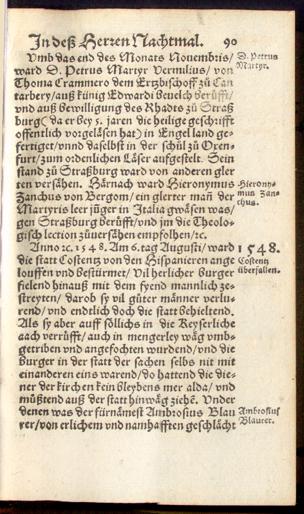 In deß Herren Nachtmal. 90
Vmb das end des Monats Nouembris/
ward D. Petrus Martyr Vermilius/ von
Thoma Crammero dem Ertzbischoff zů Can
tarbery/auß künig Edwardi beuelch berüfft/
vnd auß bewilligung des Rhadts zů Straß
burg (da er bey 5. jaren die heilige geschrifft
offentlich vorgeläsen hat) in Engel land ge-
fertiget/vnnd daselbst in der schůl zů Oxen-
furt/zum ordenlichen Läser auffgestelt. Sein
stand zů Straßburg ward von anderen gler
ten versähen. Härnach ward Hieronymus
Zanchus von Bergom/ ein glerter mañ der
Martyris leer jünger in Italia gwäsen was/
gen Straßburg berüfft/vnd jm die Theolo-
gisch lection zůuersähen empfolhen/ꝛc.
Anno ꝛc. 1548. Am 6. tag Augusti/ ward
die statt Costentz von den Hispanieren ange
louffen vnd bestürmet/ Vil herlicher burger
fielend hinauß mit dem fyend mannlich ze-
streyten/ darob sy vil gůter männer verlu-
rend/ vnd endtlich doch die statt behieltend.
Als sy aber auff söllichs in die Keyserliche
aach verrüfft/ auch in mengerley wäg vmb-
getriben vnd angefochten wurdend/ vnd die
burger in der statt der sachen selbs nit mit
einanderen eins warend/ do hattend die die-
ner der kirchen kein bleybens mer alda/ vnd
můßtend auß der statt hinwäg ziehẽ. Vnder
denen was der fürnämest Ambrosius Blau
rer/von erlichem vnd namhafften geschlächt
D. Petrus
Martyr.
Hierony-
mus Zan-
chus.
1548.
Costentz
überfallen.
Ambrosius
Blaurer.